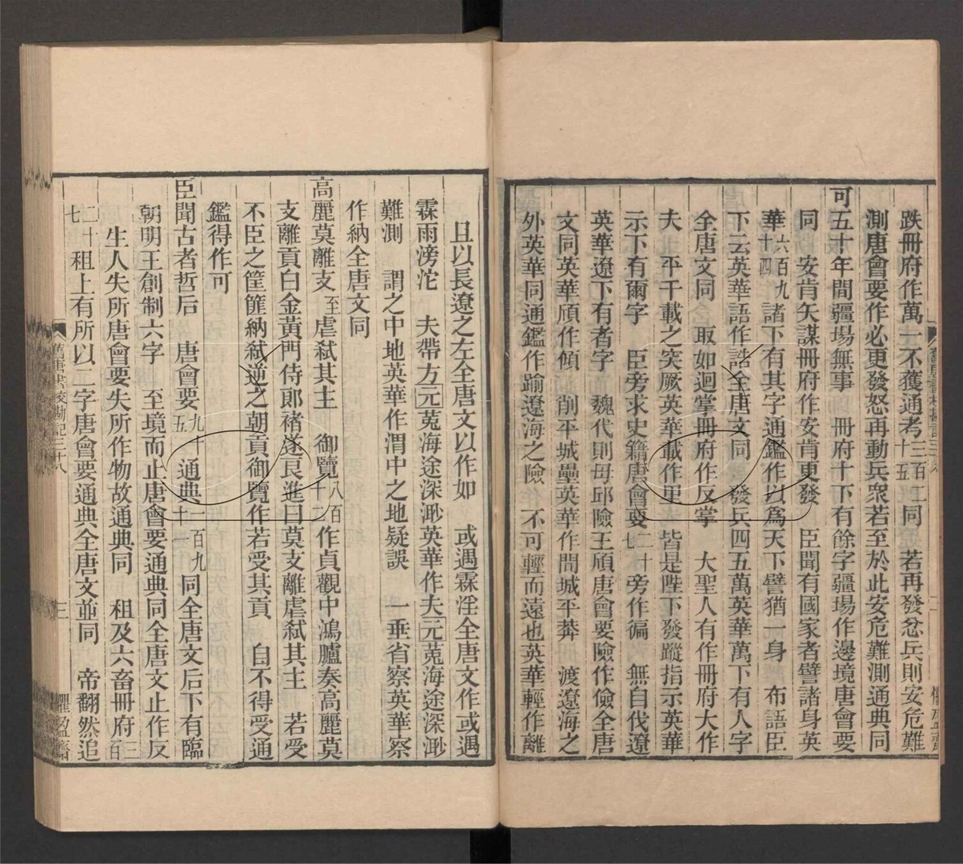 跌冊府作萬一不獲通考三百二十五同　若再發忿兵則安危難
測唐會要作必更發怒再動兵衆若至於此安危難測通典同
可五十年間疆場無事　冊府十下有餘字疆場作邊境唐會要
同　安肯矢謀冊府作安肯更發　臣聞有國家者譬諸身英
華六百九十四諸下有其字通鑑作以為天下譬猶一身　布語臣
下云英華語作誥全唐文同　發兵四五萬英華萬下有人字
全唐文同　取如迴掌冊府作反掌　大聖人有作冊府大作
夫　平千載之突厥英華載作里　皆是陛下發蹤指示英華
示下有爾字　臣旁求史籍唐會要二十七旁作徧　無自伐遼
英華遼下有者字　魏代則毋邱險王頎唐會要險作儉全唐
文同英華頎作傾　削平城壘英華作間城平莽　渡遼海之
外英華同通鑑作踰遼海之險　不可輕而遠也英華輕作離
且以長遼之左全唐文以作如　或遇霖淫全唐文作或遇
霖雨滂沱　夫帶方元菟海途深渺英華作夫元菟海途深渺
難測　謂之中地英華作渭中之地疑誤　一垂省察英華察
作納全唐文同
高麗莫離支至虐弒其主　御覽八百十二作貞觀中鴻臚奏高麗莫
支離貢白金黃門侍郎褚遂良進曰莫支離虐弒其主　若受
不臣之筐篚納弒逆之朝貢御覽作若受其貢　自不得受通
鑑得作可
臣聞古者哲后　唐會要九十五通典一百九十一同全唐文后下有臨
朝明王創制六字　至境而止唐會要通典同全唐文止作反
生人失所唐會要失所作物故通典同　租及六畜冊府三百
二十七租上有所以二字唐會要通典全唐文並同　帝翻然追
舊唐書校勘記三十八
三
懼盈齋